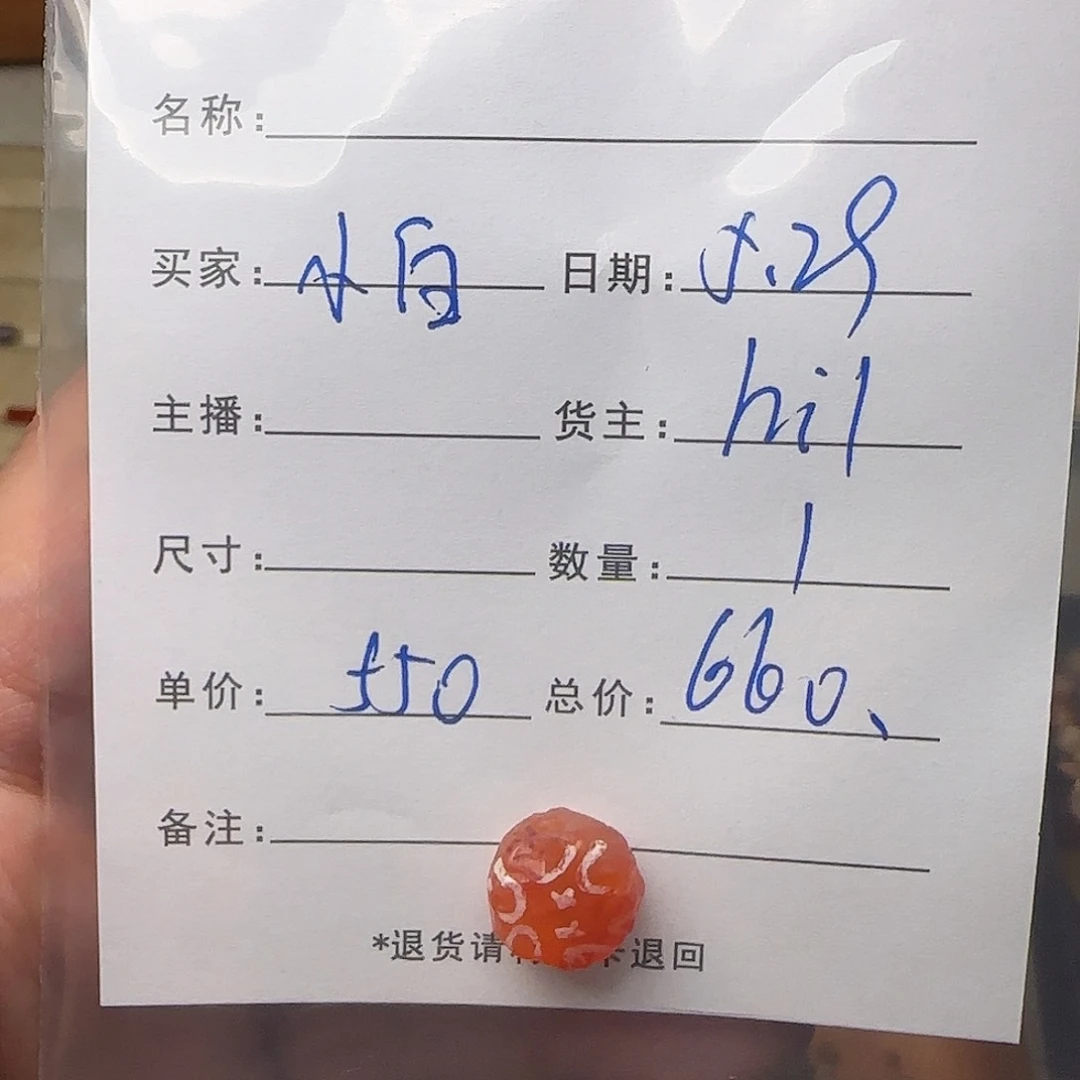 名称:
买家: 小白 日期: 5.29
主播: 货主: hil
尺寸: 数量: 1
单价: 550 总价: 660、
备注:
*退货请 卡退回